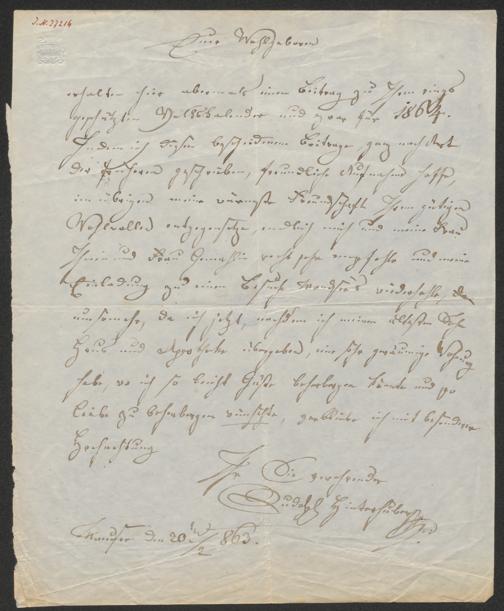 J.N. 37214
Euer Wohlgeboren
erhalten hier abermals einen Beitrag zu Ihrem
geschätzten Volkskalender und zwar für 1864.
Indem ich diesem bescheidenen Beitrage, ganz nach Art
der früheren geschrieben, freundliche Aufnahme hoffe,
im übrigen meine wärmste Freundschaft Ihrem gütigen
Wohlwollen entgegensetze, endlich mich und meine Frau
Ihnen und Frau Gemahlin recht sehr empfehle und meine
Einladung zu einem Besuch Mondsee's wiederhole, 
umsomehr, da ich jetzt, nachdem ich meinem ältesten Sohn
Haus und Apotheke übergeben, eine sehr geräumige Wohnung
habe, wo ich so leicht Gäste beherbergen könnte und so
liebe zu beherbergen wünschte, ich mit besonderer
Hochachtung
Ihr Sie verehrender
Rudolph Hinterhuber
Mondsee den 20/2 863.